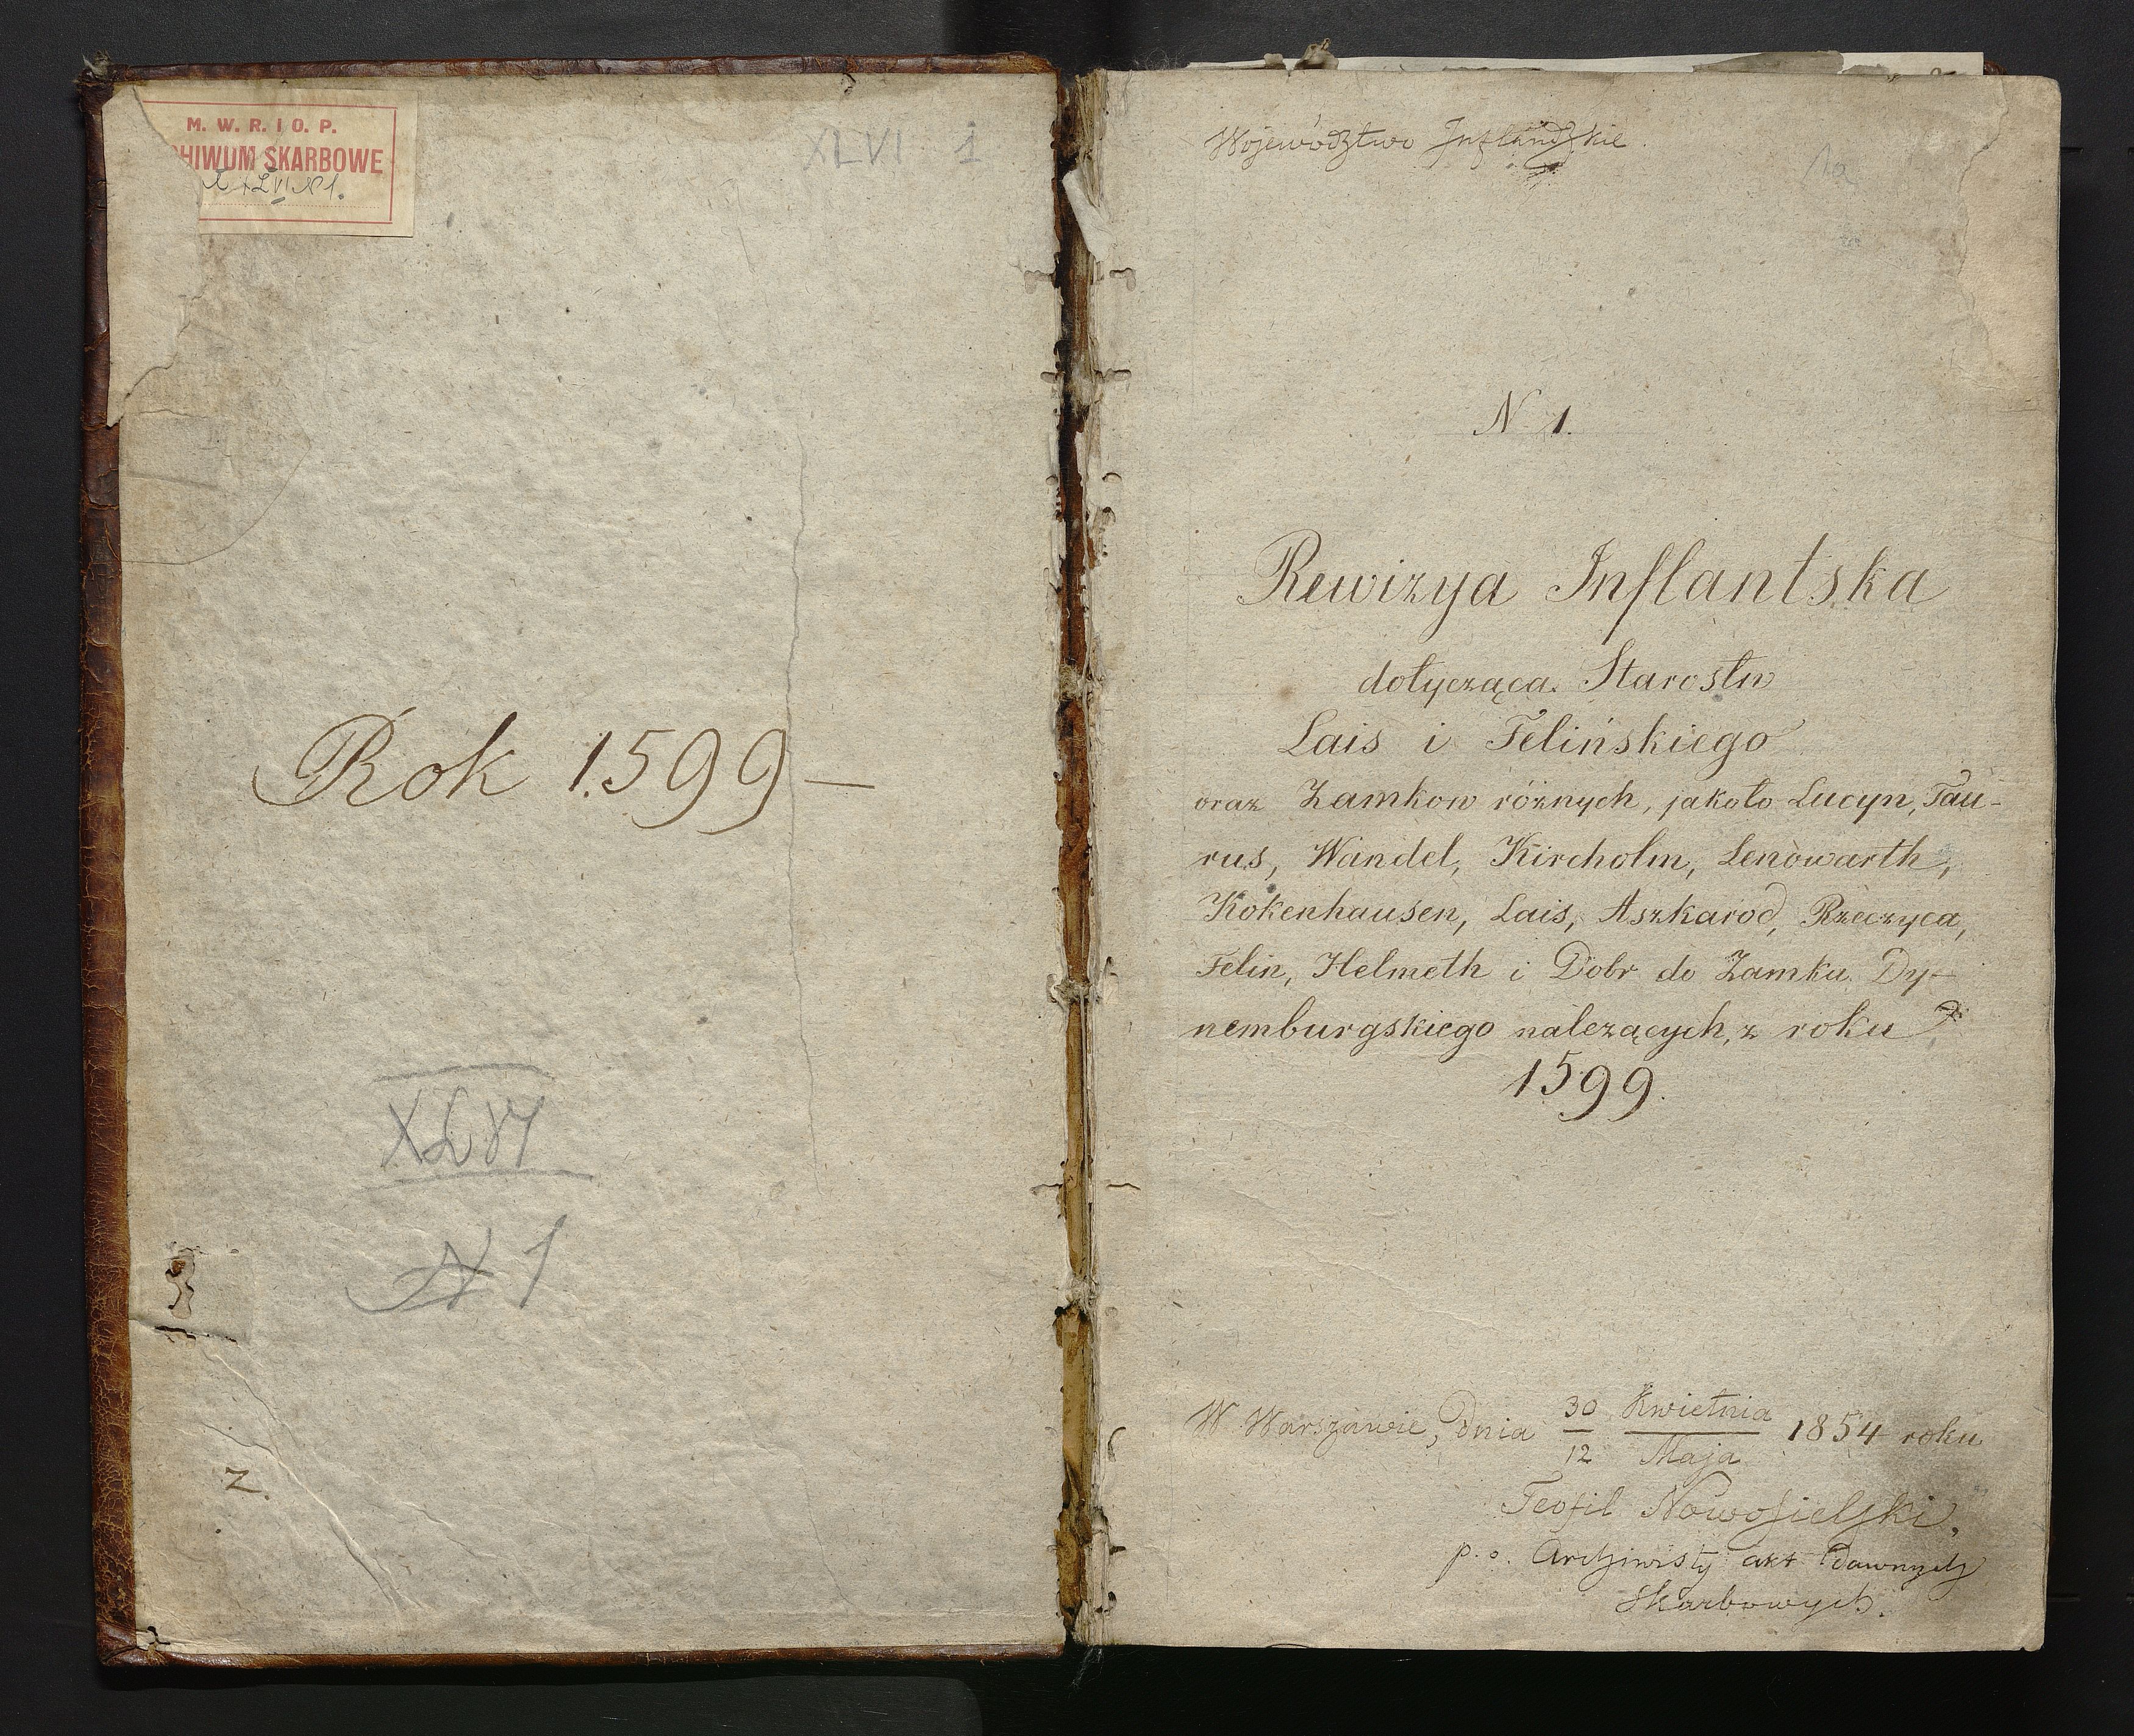 M. W. R. I O. P.
CHIWUM SKARBOWE
XLVI N 1.
XLVI 1
Rok 1599 —
XLVI
N 1
2.
Wojewodztwo Inflandzkie.
1a
N 1.
Rewizya Inflantska
dotycząca Starostw
Lais i Felińskiego
oraz Zamkow różnych, jakoto Lucyn, Tau-
rus, Wandel, Kircholm, Lenowarth,
Kokenhausen, Lais, Aszkarod, Rzeczyca,
Felin, Helmeth i Dobr do Zamku Dy-
nemburgskiego należących, z roku
1599.
W Warszawie, dnia 30/12 Kwietnia/Maja 1854 roku
Teofil Nowosielski,
p. o. Archiwisty akt dawnych
Skarbowych.